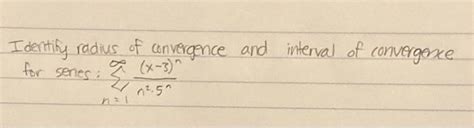 Identify radius of convergence and interval of convergence
for series: ∞ Σ n=1 (x-3)^n / n²·5^n